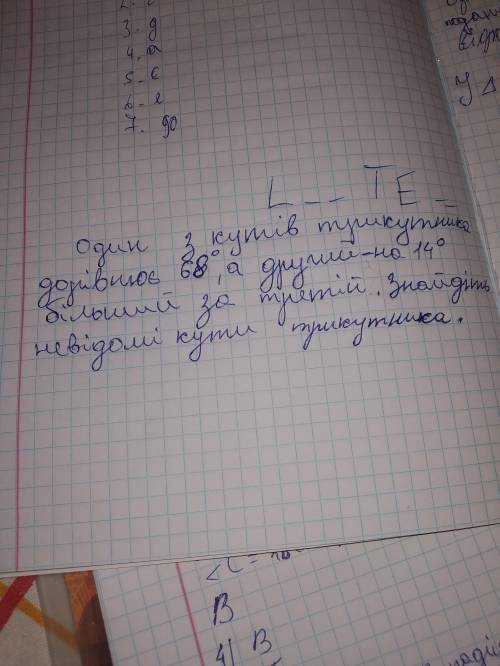 3. д
4. а
5. є
6. е
7. до
L _ _ T E _
Один з кутів трикутника
дорівнює 68°, а другий - на 14°
більший за третій. Знайдіть
невідомі кути трикутника.
У Δ
В
4) В